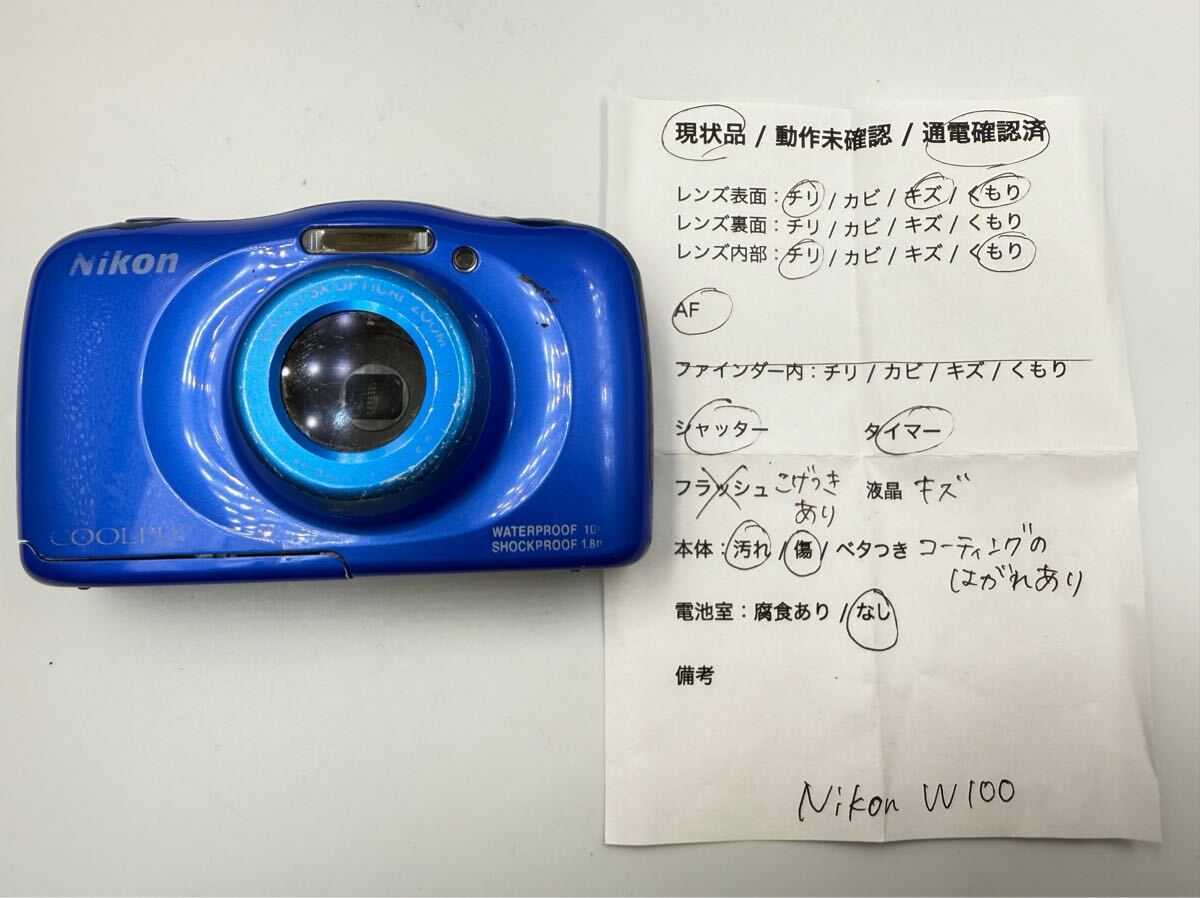 Nikon
3X OPTICAL ZOOM
COOLPIX
WATERPROOF 10
SHOCKPROOF 1.8m
現状品 / 動作未確認 / 通電確認済
レンズ表面：チリ / カビ / キズ / くもり
レンズ裏面：チリ / カビ / キズ / くもり
レンズ内部：チリ / カビ / キズ / くもり
AF
ファインダー内：チリ / カビ / キズ / くもり
シャッター タイマー
フラッシュ こげつき 液晶 キズ
あり
本体：汚れ / 傷 / ベタつき コーティングの
はがれあり
電池室：腐食あり / なし
備考
Nikon W100